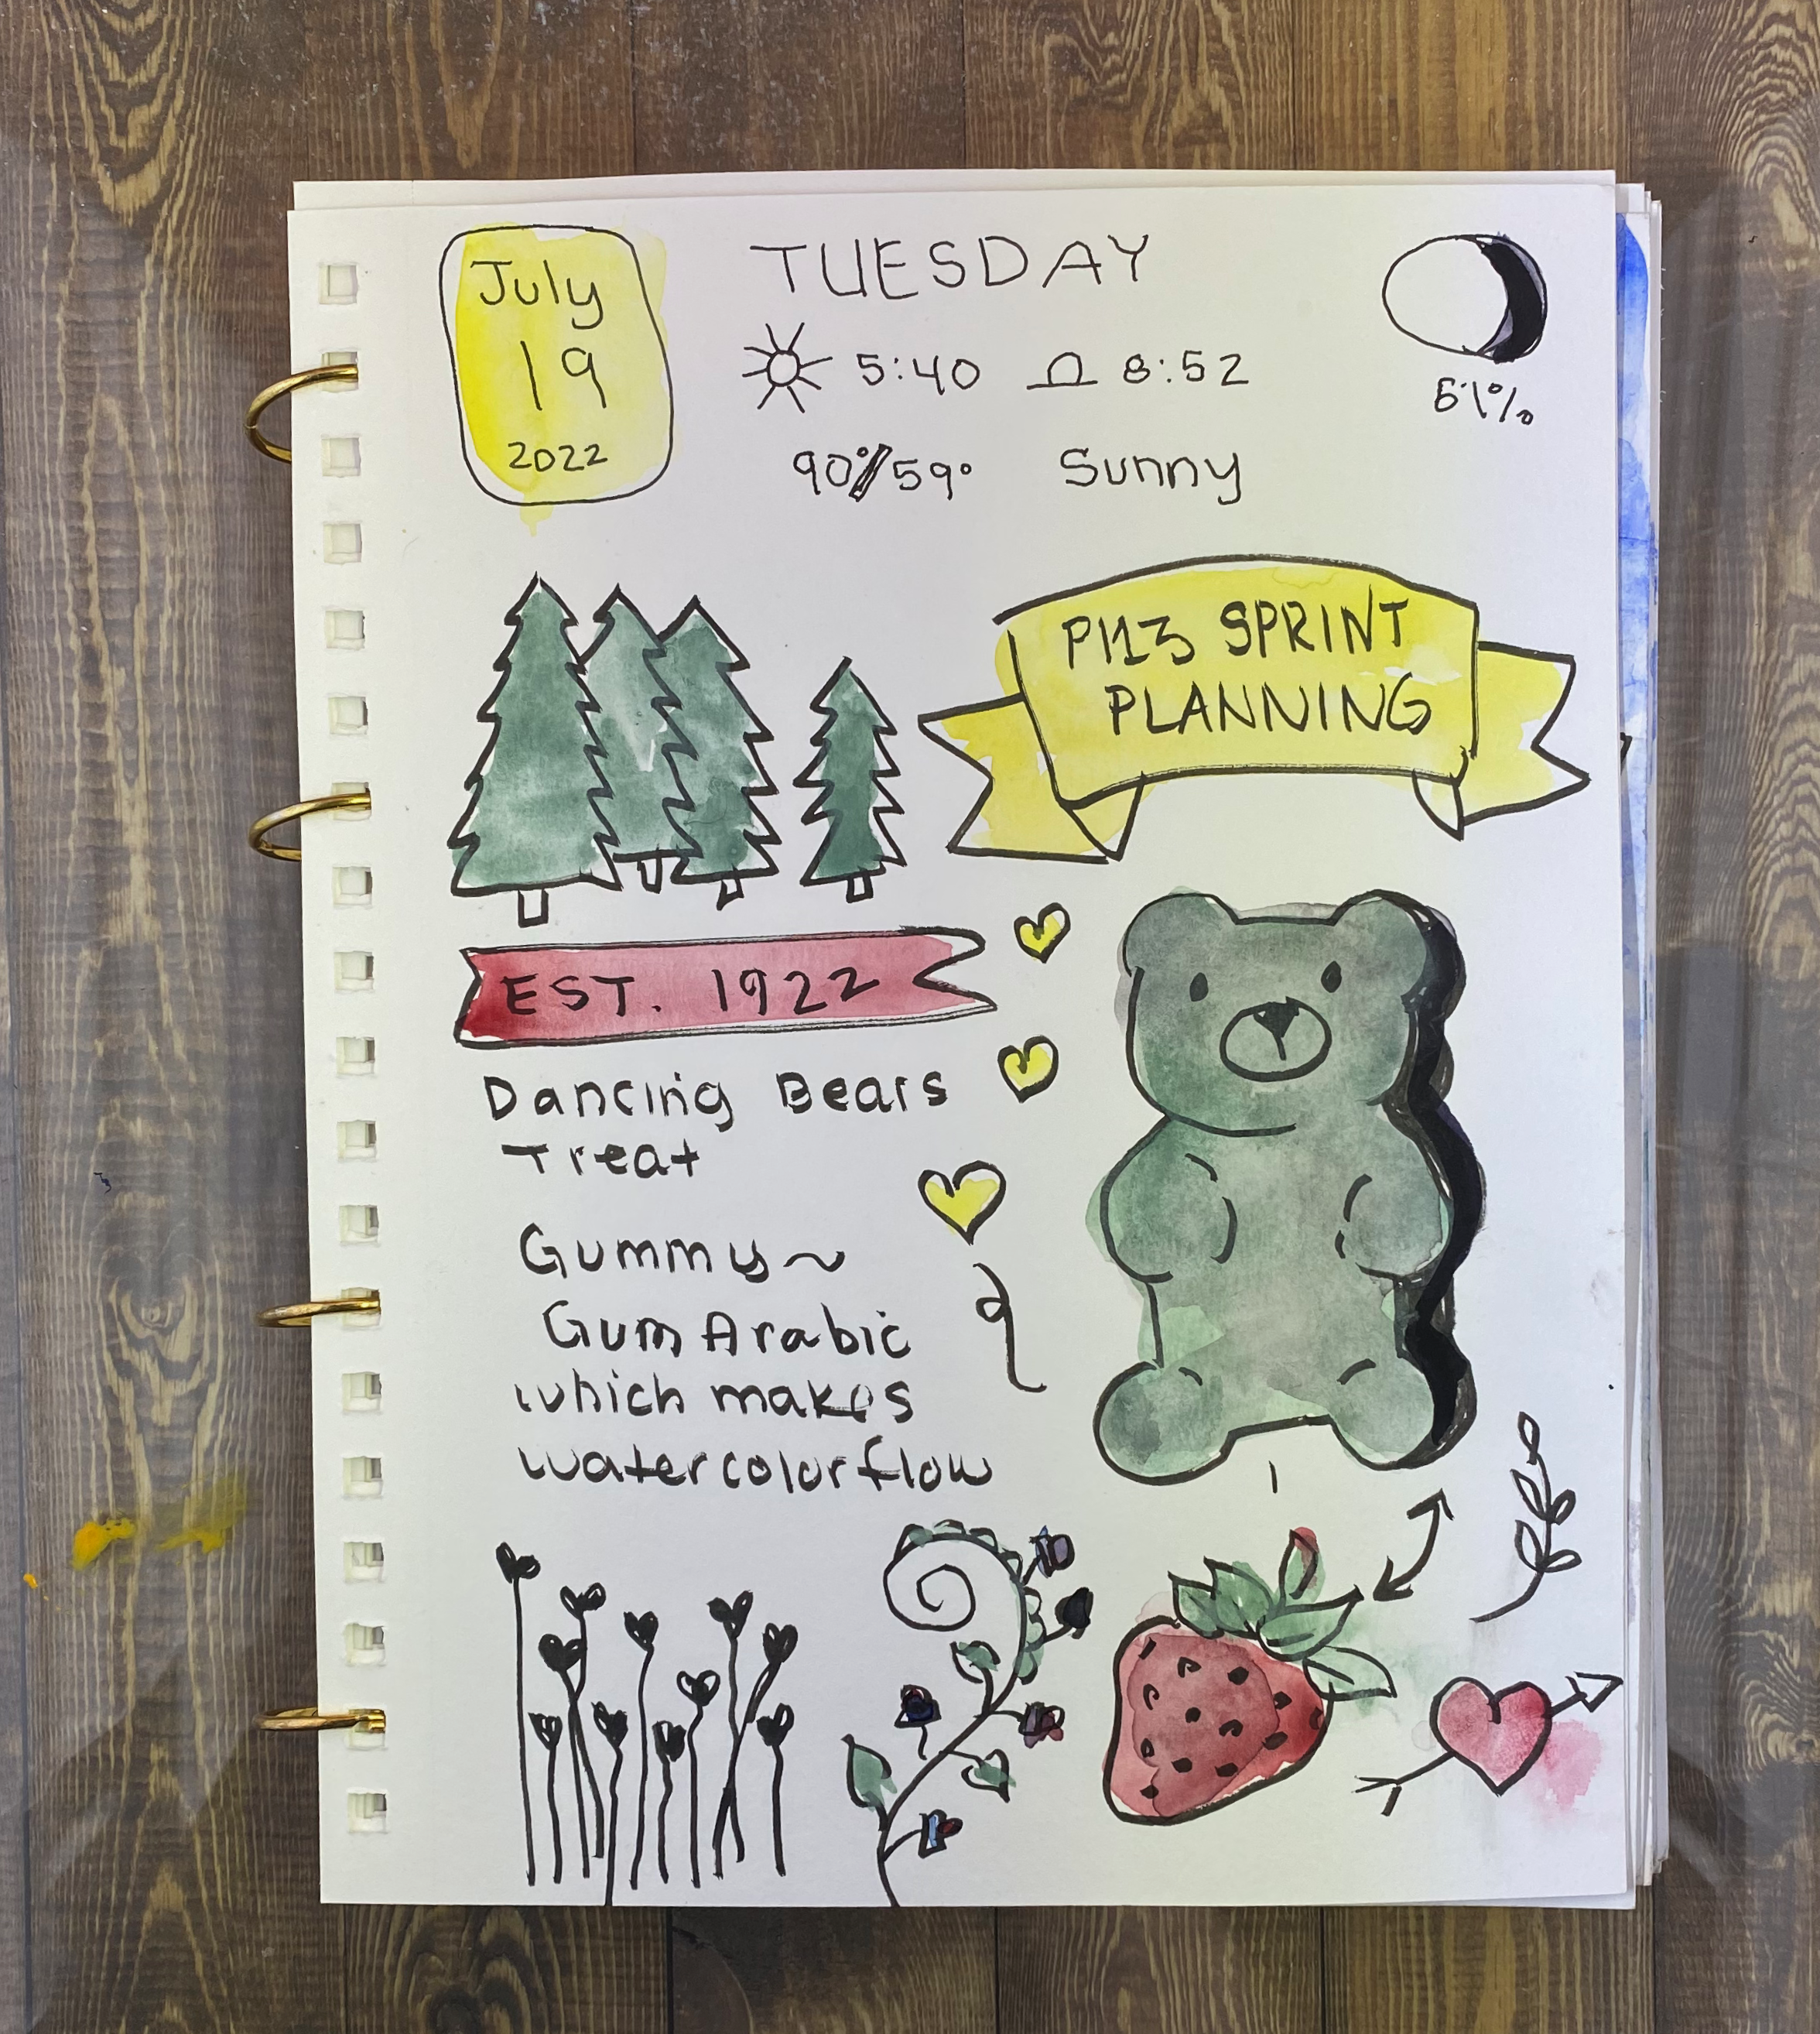 July
19
2022
TUESDAY
5:40 8:52
90°/59° Sunny
61%
PI13 SPRINT
PLANNING
EST. 1922
Dancing Bears
Treat
Gummy~
Gum Arabic
which makes
watercolor flow